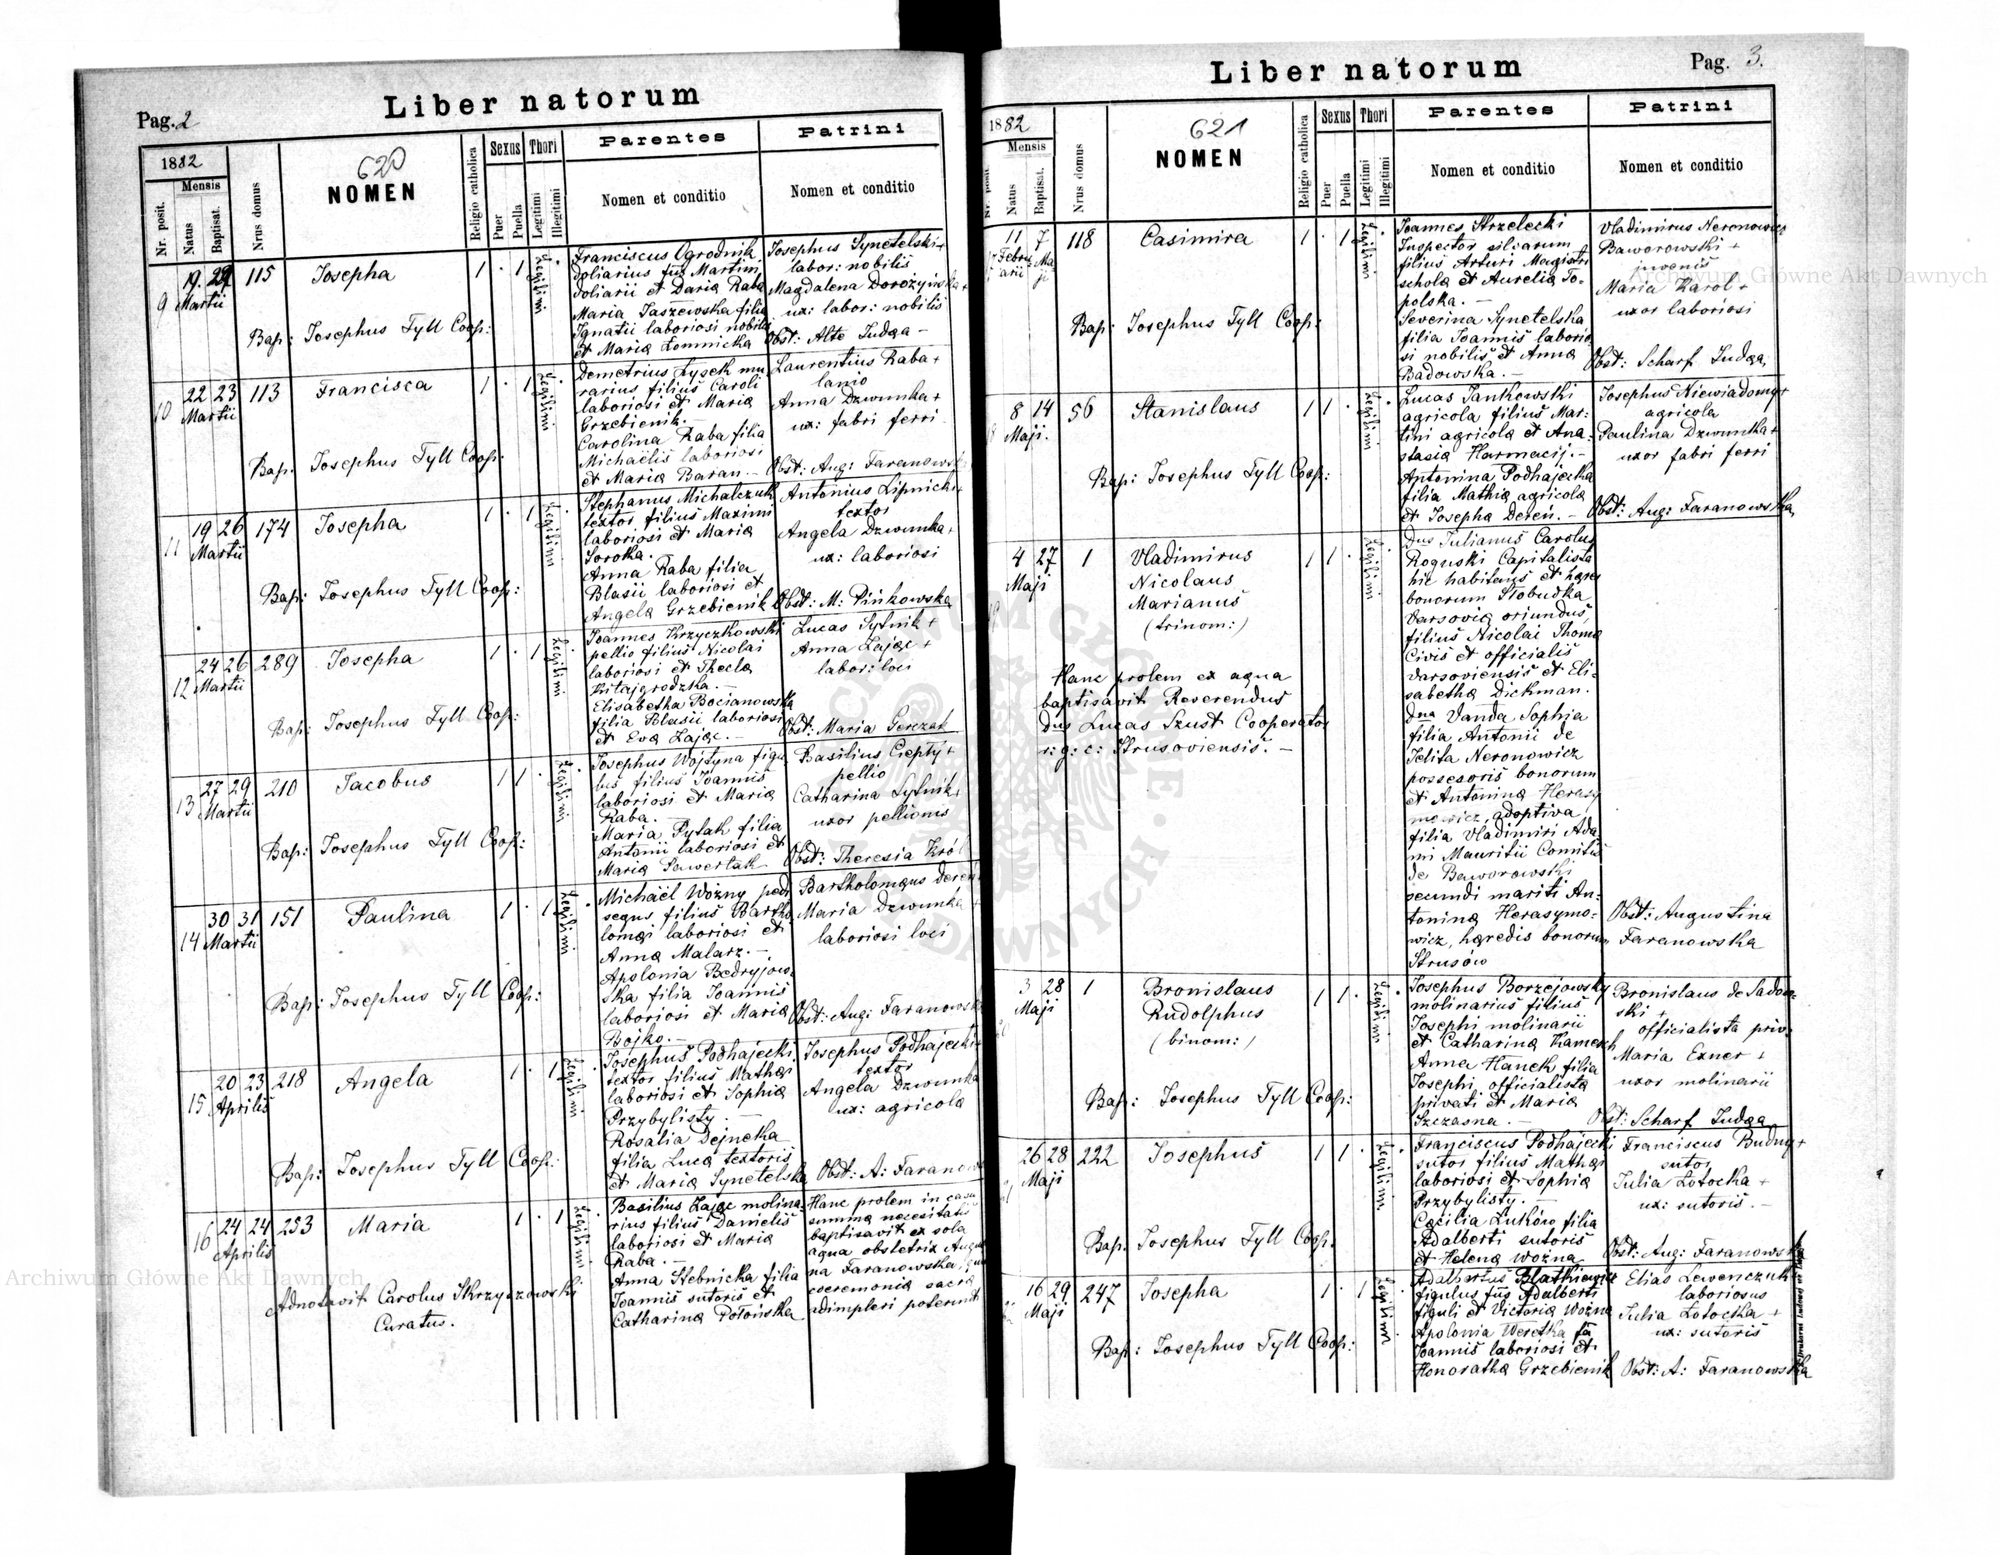 Pag. 2
Liber natorum
1882
Mensis
Nr. posit.
Natus
Baptisat.
Nrus domus
620
NOMEN
Religio catholica
Sexus
Puer
Puella
Thori
Legitimi
Illegitimi
Parentes
Nomen et conditio
Patrini
Nomen et conditio
9
19. 29
Martii
115
Josepha
1 . 1
Legitimi
Bap: Josephus Tyll Coop:
Franciscus Ogrodnik
doliarius fus Martini
doliarii et Daria Raba
Maria Jaszewska filia
Ignatii laboriosi nobilis
et Maria Łomnicka
Josephus Synetelski +
labor: nobilis
Magdalena Dorożyńska +
ux: labor: nobilis
Obst: Alte Judæa —
10
22 23
Martii
113
Francisca
1 . 1
Legitimi
Bap: Josephus Tyll Coop:
Demetrius Łysek mu
rarius filius Caroli
laboriosi et Maria
Grzebienik.
Carolina Raba filia
Michaëlis laboriosi
et Maria Baran. —
Laurentius Raba +
lanio
Anna Dzwonka +
ux: fabri ferri
Obst: Aug: Faranowsk
11
19 26
Martii
174
Josepha
1 . 1
Legitimi
Bap: Josephus Tyll Coop:
Stephanus Michalczuk
textor filius Maximi
laboriosi et Maria
Soroka.
Anna Raba filia
Blasii laboriosi et
Angela Grzebienik
Antonius Lipnicki +
textor
Angela Dzwonka +
ux: laboriosi
Obst: M: Pińkowska
12
24 26
Martii
289
Josepha
1 . 1
Legitimi
Bap: Josephus Tyll Coop:
Joannes Krzyczkowski
pellio filius Nicolai
laboriosi et Thecla
Kitajgrodzka. —
Elisabetha Bocianowska
filia Blasii laboriosi
et Eva Zając. —
Lucas Sytnik +
Anna Zając +
labor: loci
Obst: Maria Gerczak
13
27 29
Martii
210
Jacobus
1 1 .
Legitimi
Bap: Josephus Tyll Coop:
Josephus Wojtyna figu
lus filius Joannis
laboriosi et Maria
Raba. —
Maria Pytak filia
Antonii laboriosi et
Maria Pawertak —
Basilius Ciepły +
pellio
Catharina Sytnik +
uxor pellionis
Obst: Theresia Król
14
30 31
Martii
151
Paulina
1 . 1
Legitimi
Bap: Josephus Tyll Coop:
Michaël Wozny pedi
sequs filius Bartho
lomæi laboriosi et
Anna Malarz. —
Apolonia Bedryjow
ska filia Joannis
laboriosi et Maria
Bojko. —
Bartholomæus Dereń
Maria Dzwonka
laboriosi loci
Obst: Aug: Faranowska
15
20 23
Aprilis
218
Angela
1 . 1
Legitimi
Bap: Josephus Tyll Coop:
Josephus Podhajecki
textor filius Mathæi
laboriosi et Sophia
Przybylisty. —
Rosalia Dejneka
filia Luca textoris
et Maria Synetelska
Josephus Podhajecki +
textor
Angela Dzwonka
ux: agricola
Obst: A: Faranows
16
24 24
Aprilis
253
Maria
1 . 1
Legitimi
Adnotavit Carolus Skrzyszowski
Curatus.
Basilius Zając molina-
rius filius Danielis
laboriosi et Maria
Raba. —
Anna Stebnicka filia
Joannis sutoris et
Catharina Potońska
Hanc prolem in casu
summa necesitatis
baptisavit ex sola
aqua obstetrix Augus
na Faranowska,
cæremonia sacra
adimpleri poterint
Liber natorum
Pag. 3.
1882
Mensis
Nr. posit.
Natus
Baptisat.
Nrus domus
621
NOMEN
Religio catholica
Sexus
Puer
Puella
Thori
Legitimi
Illegitimi
Parentes
Nomen et conditio
Patrini
Nomen et conditio
11 7
Febru
arii
Ma
ji
118
Casimira
1 . 1
Legitimi
Bap: Josephus Tyll Coop:
Joannes Strzelecki
Inspector silvarum
filius Arturi Magistri
schola et Aurelia To-
polska. —
Severina Synetelska
filia Joannis laborio
si nobilis et Anna
Badowska. —
Vladimirus Neronowicz
Baworowski +
iuvenis
Maria Karol +
uxor laboriosi
Obst: Scharf Judæa,
8 14
Maji.
56
Stanislaus
1 1 .
Legitimi
Bap: Josephus Tyll Coop:
Lucas Jankowski
agricola filius Mar:
tini agricola et Ana-
stasia Harmacij. —
Antonina Podhajecka
filia Mathia agricola
et Josepha Dereń. —
Josephus Niewiadomy +
agricola
Paulina Dzwonka +
uxor fabri ferri
Obst: Aug: Faranowska,
4 27
Maji
1
Vladimirus
Nicolaus
Marianus
(trinom:)
1 1 .
Legitimi
Hanc prolem ex aqua
baptisavit Reverendus
Dus Lucas Szust Cooperator
r: g: c: Strusoviensis. —
Dus Julianus Carolus
Roguski Capitalista
hic habitans et hæres
bonorum Słobudka
Varsovia oriundus,
filius Nicolai Thoma
Civis et officialis
varsoviensis et Eli-
sabetha Dickman.
Dna Vanda Sophia
filia Antonii de
Jelita Neronowicz
possesoris bonorum
et Antonina Herasy
mowicz, adoptiva
filia Vladimiri Ada-
mi Mauritii Comitis
de Baworowski
secundi mariti An-
tonina Herasymo-
wicz, hæredis bonorum
Strusów
Obst: Augustina
Faranowska
3 28
Maji
1
Bronislaus
Rudolphus
(binom:)
1 1 .
Legitimi
Bap: Josephus Tyll Coop:
Josephus Borzejowsky
molinarius filius
Josephi molinarii
et Catharina Kamesch
Anna Hanek filia
Josephi officialista
privati et Maria
Szczasna. —
Bronislaus de Sadow
ski +
officialista priv:
Maria Exner +
uxor molinarii
Obst: Scharf Judæa
26 28
Maji
222
Josephus
1 1 .
Legitimi
Bap: Josephus Tyll Coop:
Franciscus Podhajecki
sutor filius Mathæi
laboriosi et Sophia
Przybylisty. —
Cæcilia Luków filia
Adalberti sutoris
et Helena Wozna
Franciscus Budny +
sutor
Julia Łotocka +
ux: sutoris. —
Obst: Aug: Faranowska
16 29
Maji
247
Josepha
1 . 1
Legitimi
Bap: Josephus Tyll Coop:
Adalbertus Blatkiewicz
figulus fus Adalberti
figuli et Victoria Wozna
Apolonia Weretka fa
Joannis laboriosi et
Honoratha Grzebienik
Elias Lewenczuk
laboriosus
Julia Łotocka +
ux: sutoris
Obst: A: Faranowska
Archiwum Główne Akt Dawnych
Archiwum Główne Akt Dawnych
ARCHIWUM GŁÓWNE AKT DAWNYCH